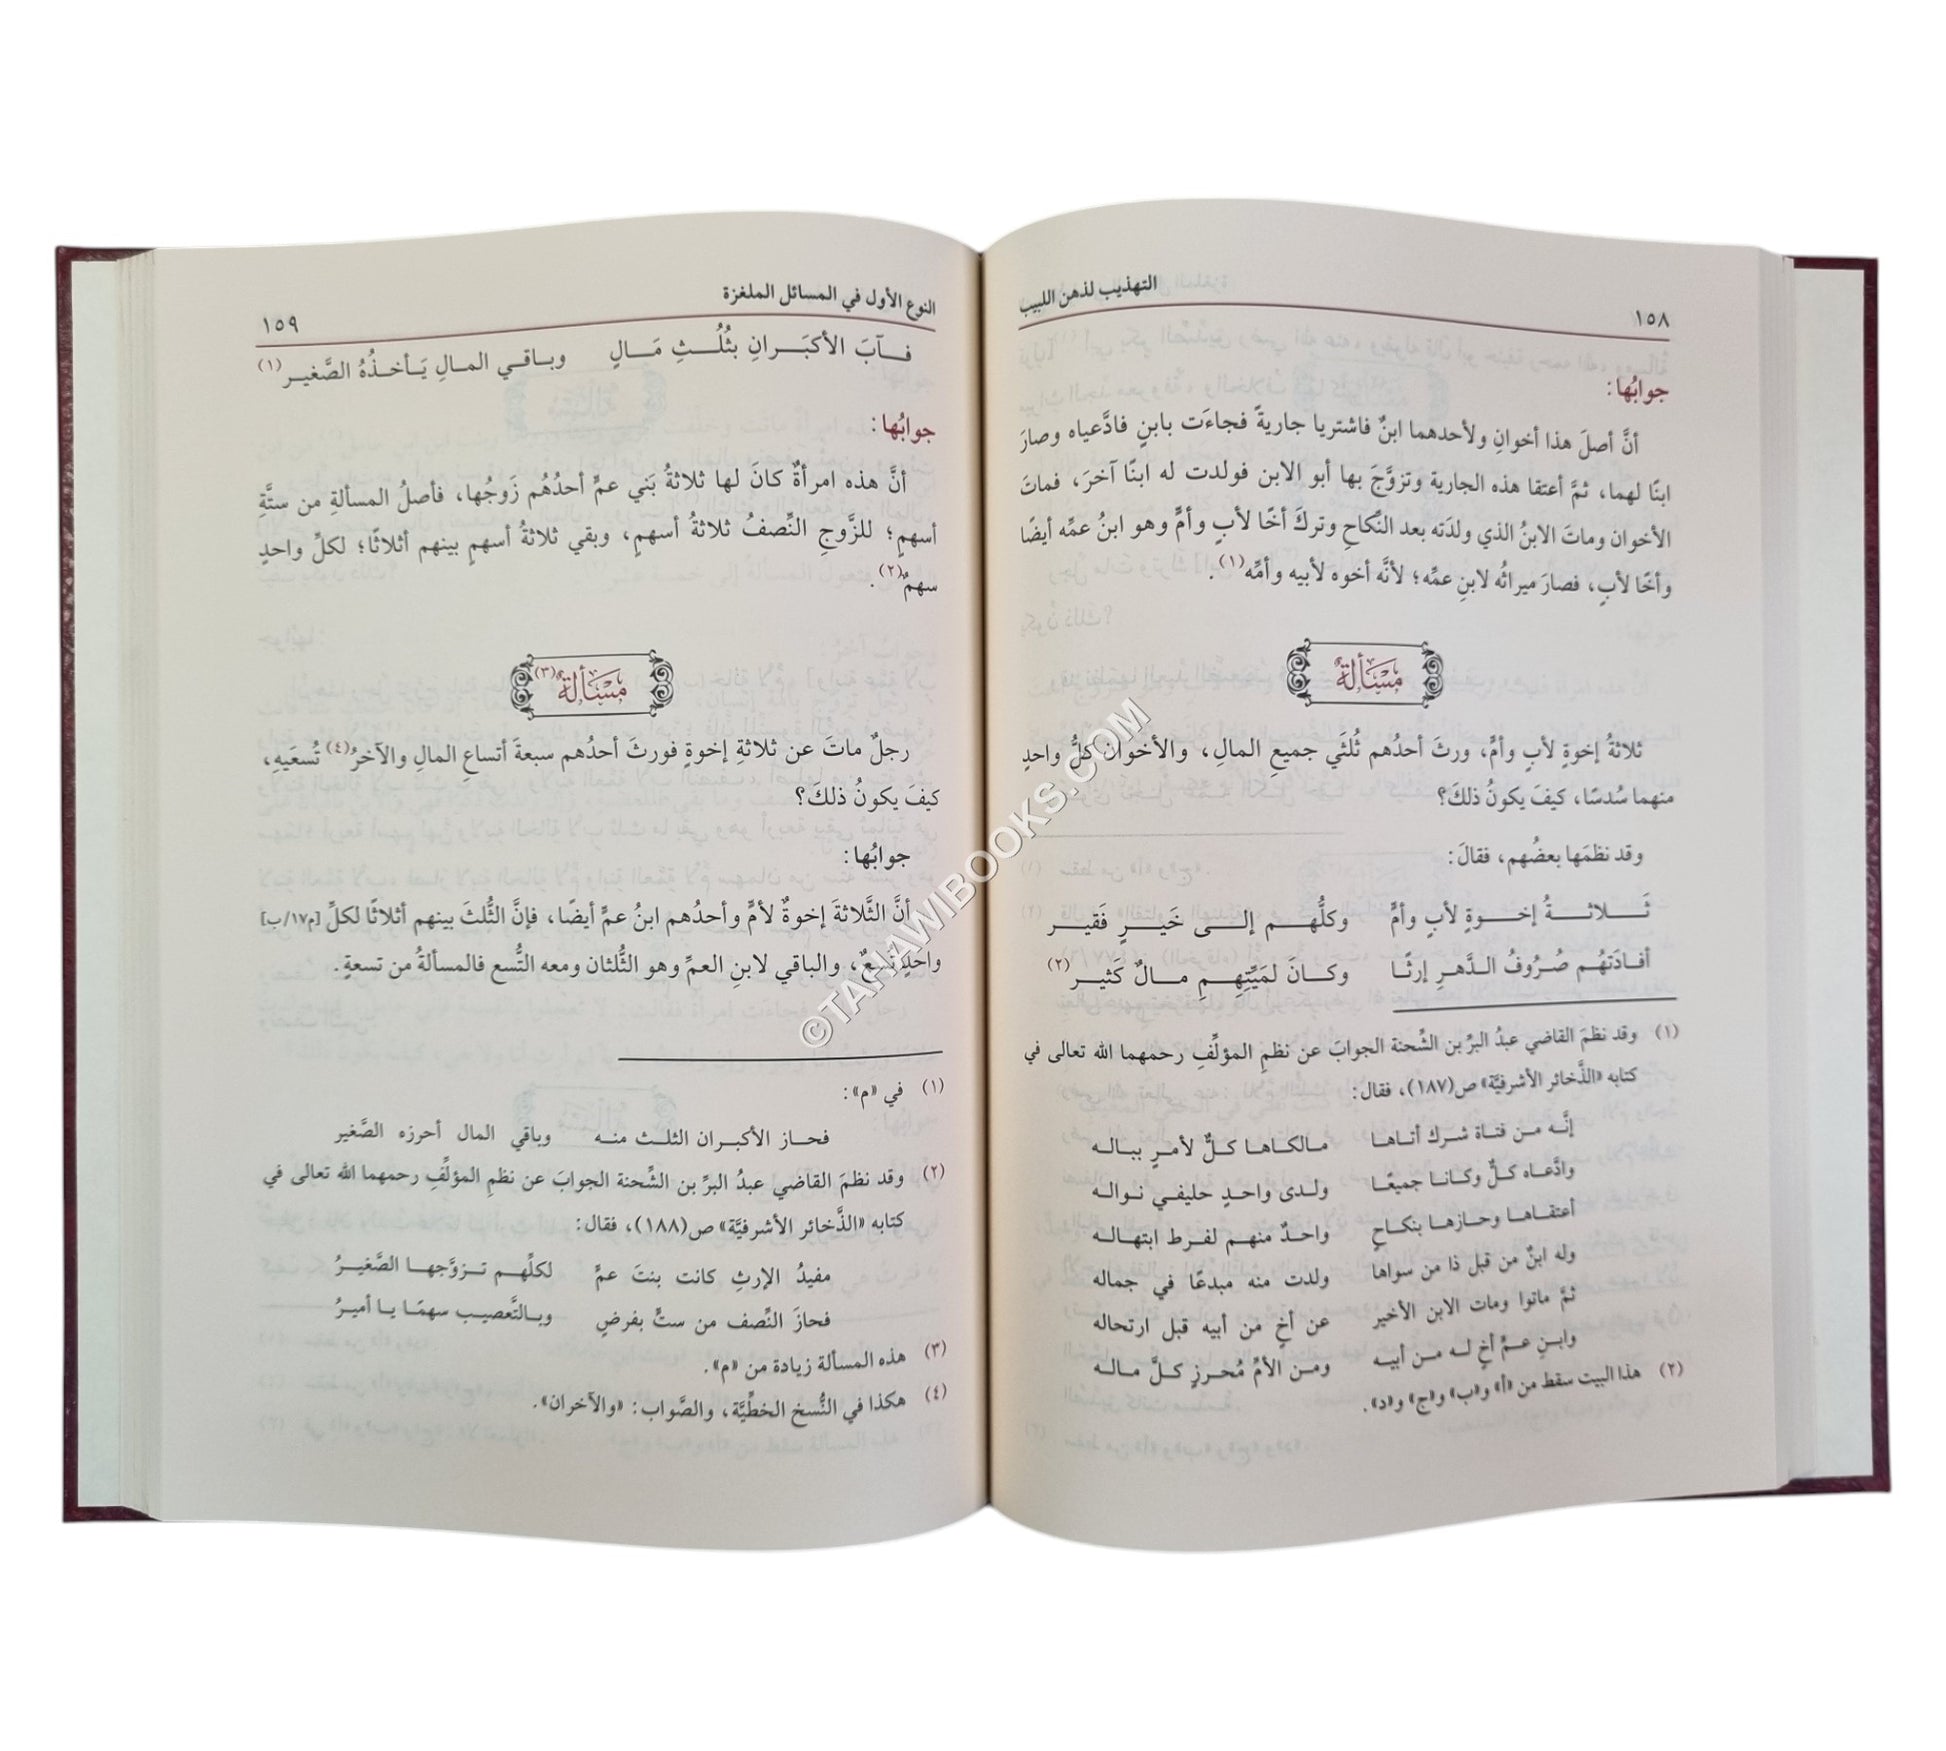 التهذيب لذهن اللبيب
١٥٨
جوابُها:
أنَّ أصلَ هذا أخوانِ ولأحدهما ابنٌ فاشتريا جاريةً فجاءَت بابنٍ فادَّعياه وصارَ
ابنًا لهما، ثمَّ أعتقا هذه الجارية وتزوَّجَ بها أبو الابن فولدت له ابنًا آخرَ، فماتَ
الأخوان وماتَ الابنُ الذي ولدَته بعد النِّكاحِ وتركَ أخًا لأبٍ وأمٍّ وهو ابنُ عمِّه أيضًا
وأخًا لأبٍ، فصارَ ميراثُه لابنِ عمِّه؛ لأنَّه أخوه لأبيه وأمِّه(١).
مَسْأَلَةٌ
ثلاثةُ إخوةٍ لأبٍ وأمٍّ، ورثَ أحدُهم ثُلثَي جميعِ المالِ، والأخوان كلُّ واحدٍ
منهما سُدسًا، كيفَ يكونُ ذلكَ؟
وقد نظمَها بعضُهم، فقالَ:
ثَلاثةُ إخوةٍ لأبٍ وأمٍّ وكلُّهم إلى خَيرٍ فَقير
أفادَتهُم صُرُوفُ الدَّهرِ إرثًا وكانَ لمَيِّتِهِم مالٌ كَثير(٢)
(١) وقد نظمَ القاضي عبدُ البرِّ بن الشِّحنة الجوابَ عن نظمِ المؤلِّفِ رحمهما الله تعالى في
كتابه «الذَّخائر الأشرفيَّة» ص(١٨٧)، فقال:
إنَّه من فتاة شرك أتاها مالكاها كلٌّ لأمرٍ بباله
وادَّعاه كلٌّ وكانا جميعًا ولدى واحدٍ حليفي نواله
أعتقاها وحازها بنكاحٍ واحدٌ منهم لفرط ابتهاله
وله ابنٌ من قبل ذا من سواها ولدت منه مبدعًا في جماله
ثمَّ ماتوا ومات الابن الأخير عن أخٍ من أبيه قبل ارتحاله
وابنِ عمٍّ أخٍ له من أبيه ومن الأمِّ مُحرزٍ كلَّ ماله
(٢) هذا البيت سقط من «أ» و«ب» و«ج» و«د».
النوع الأول في المسائل الملغزة
١٥٩
فآبَ الأكبَرانِ بثُلُثِ مَالٍ وباقي المالِ يَأخذُهُ الصَّغير(١)
جوابُها:
أنَّ هذه امرأةٌ كانَ لها ثلاثةُ بَني عمٍّ أحدُهُم زَوجُها، فأصلُ المسألةِ من ستَّةِ
أسهمٍ؛ للزَّوجِ النِّصفُ ثلاثةُ أسهمٍ، وبقي ثلاثةُ أسهمٍ بينهم أثلاثًا؛ لكلِّ واحدٍ
سهمٌ(٢).
مَسْأَلَةٌ(٣)
رجلٌ ماتَ عن ثلاثةِ إخوةٍ فورثَ أحدُهم سبعةَ أتساعِ المالِ والآخرُ(٤) تُسعَيهِ،
كيفَ يكونُ ذلكَ؟
جوابُها:
أنَّ الثَّلاثةَ إخوةٌ لأمٍّ وأحدُهم ابنُ عمٍّ أيضًا، فإنَّ الثُّلثَ بينهم أثلاثًا لكلِّ [م١٧/ب]
واحدٍ تُسعٌ، والباقي لابنِ العمِّ وهو الثُّلثان ومعه التُّسع فالمسألةُ من تسعةٍ.
(١) في «م»:
فحاز الأكبران الثلث منه وباقي المال أحرزه الصَّغير
(٢) وقد نظمَ القاضي عبدُ البرِّ بن الشِّحنة الجوابَ عن نظمِ المؤلِّفِ رحمهما الله تعالى في
كتابه «الذَّخائر الأشرفيَّة» ص(١٨٨)، فقال:
مفيدُ الإرثِ كانت بنتَ عمٍّ لكلِّهم تزوَّجها الصَّغيرُ
فحازَ النِّصف من ستٍّ بفرضٍ وبالتَّعصيب سهمًا يا أميرُ
(٣) هذه المسألة زيادة من «م».
(٤) هكذا في النُّسخ الخطِّيَّة، والصَّواب: «والآخران».
©TAHAWIBOOKS.COM